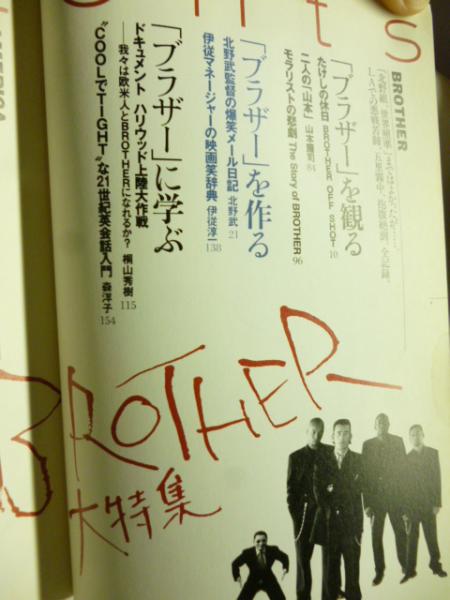 nts
BROTHER
「北野組、世界標準」まではよかったが……。
LAでの悪戦苦闘、五里霧中、抱腹絶倒、全記録。
「ブラザー」を観る
たけしの休日 BROTHER OFF SHOT 10
二人の「山本」 山本隆司 84
モラリストの悲劇 The Story of BROTHER 96
「ブラザー」を作る
北野武監督の爆笑メール日記 北野武 21
伊従マネージャーの映画笑辞典 伊従淳一 138
「ブラザー」に学ぶ
ドキュメント ハリウッド上陸大作戦
――我々は欧米人とBROTHERになれるか? 桐山秀樹 115
“COOLでTIGHT”な21世紀英会話入門 森洋子 154
BROTHER
大特集